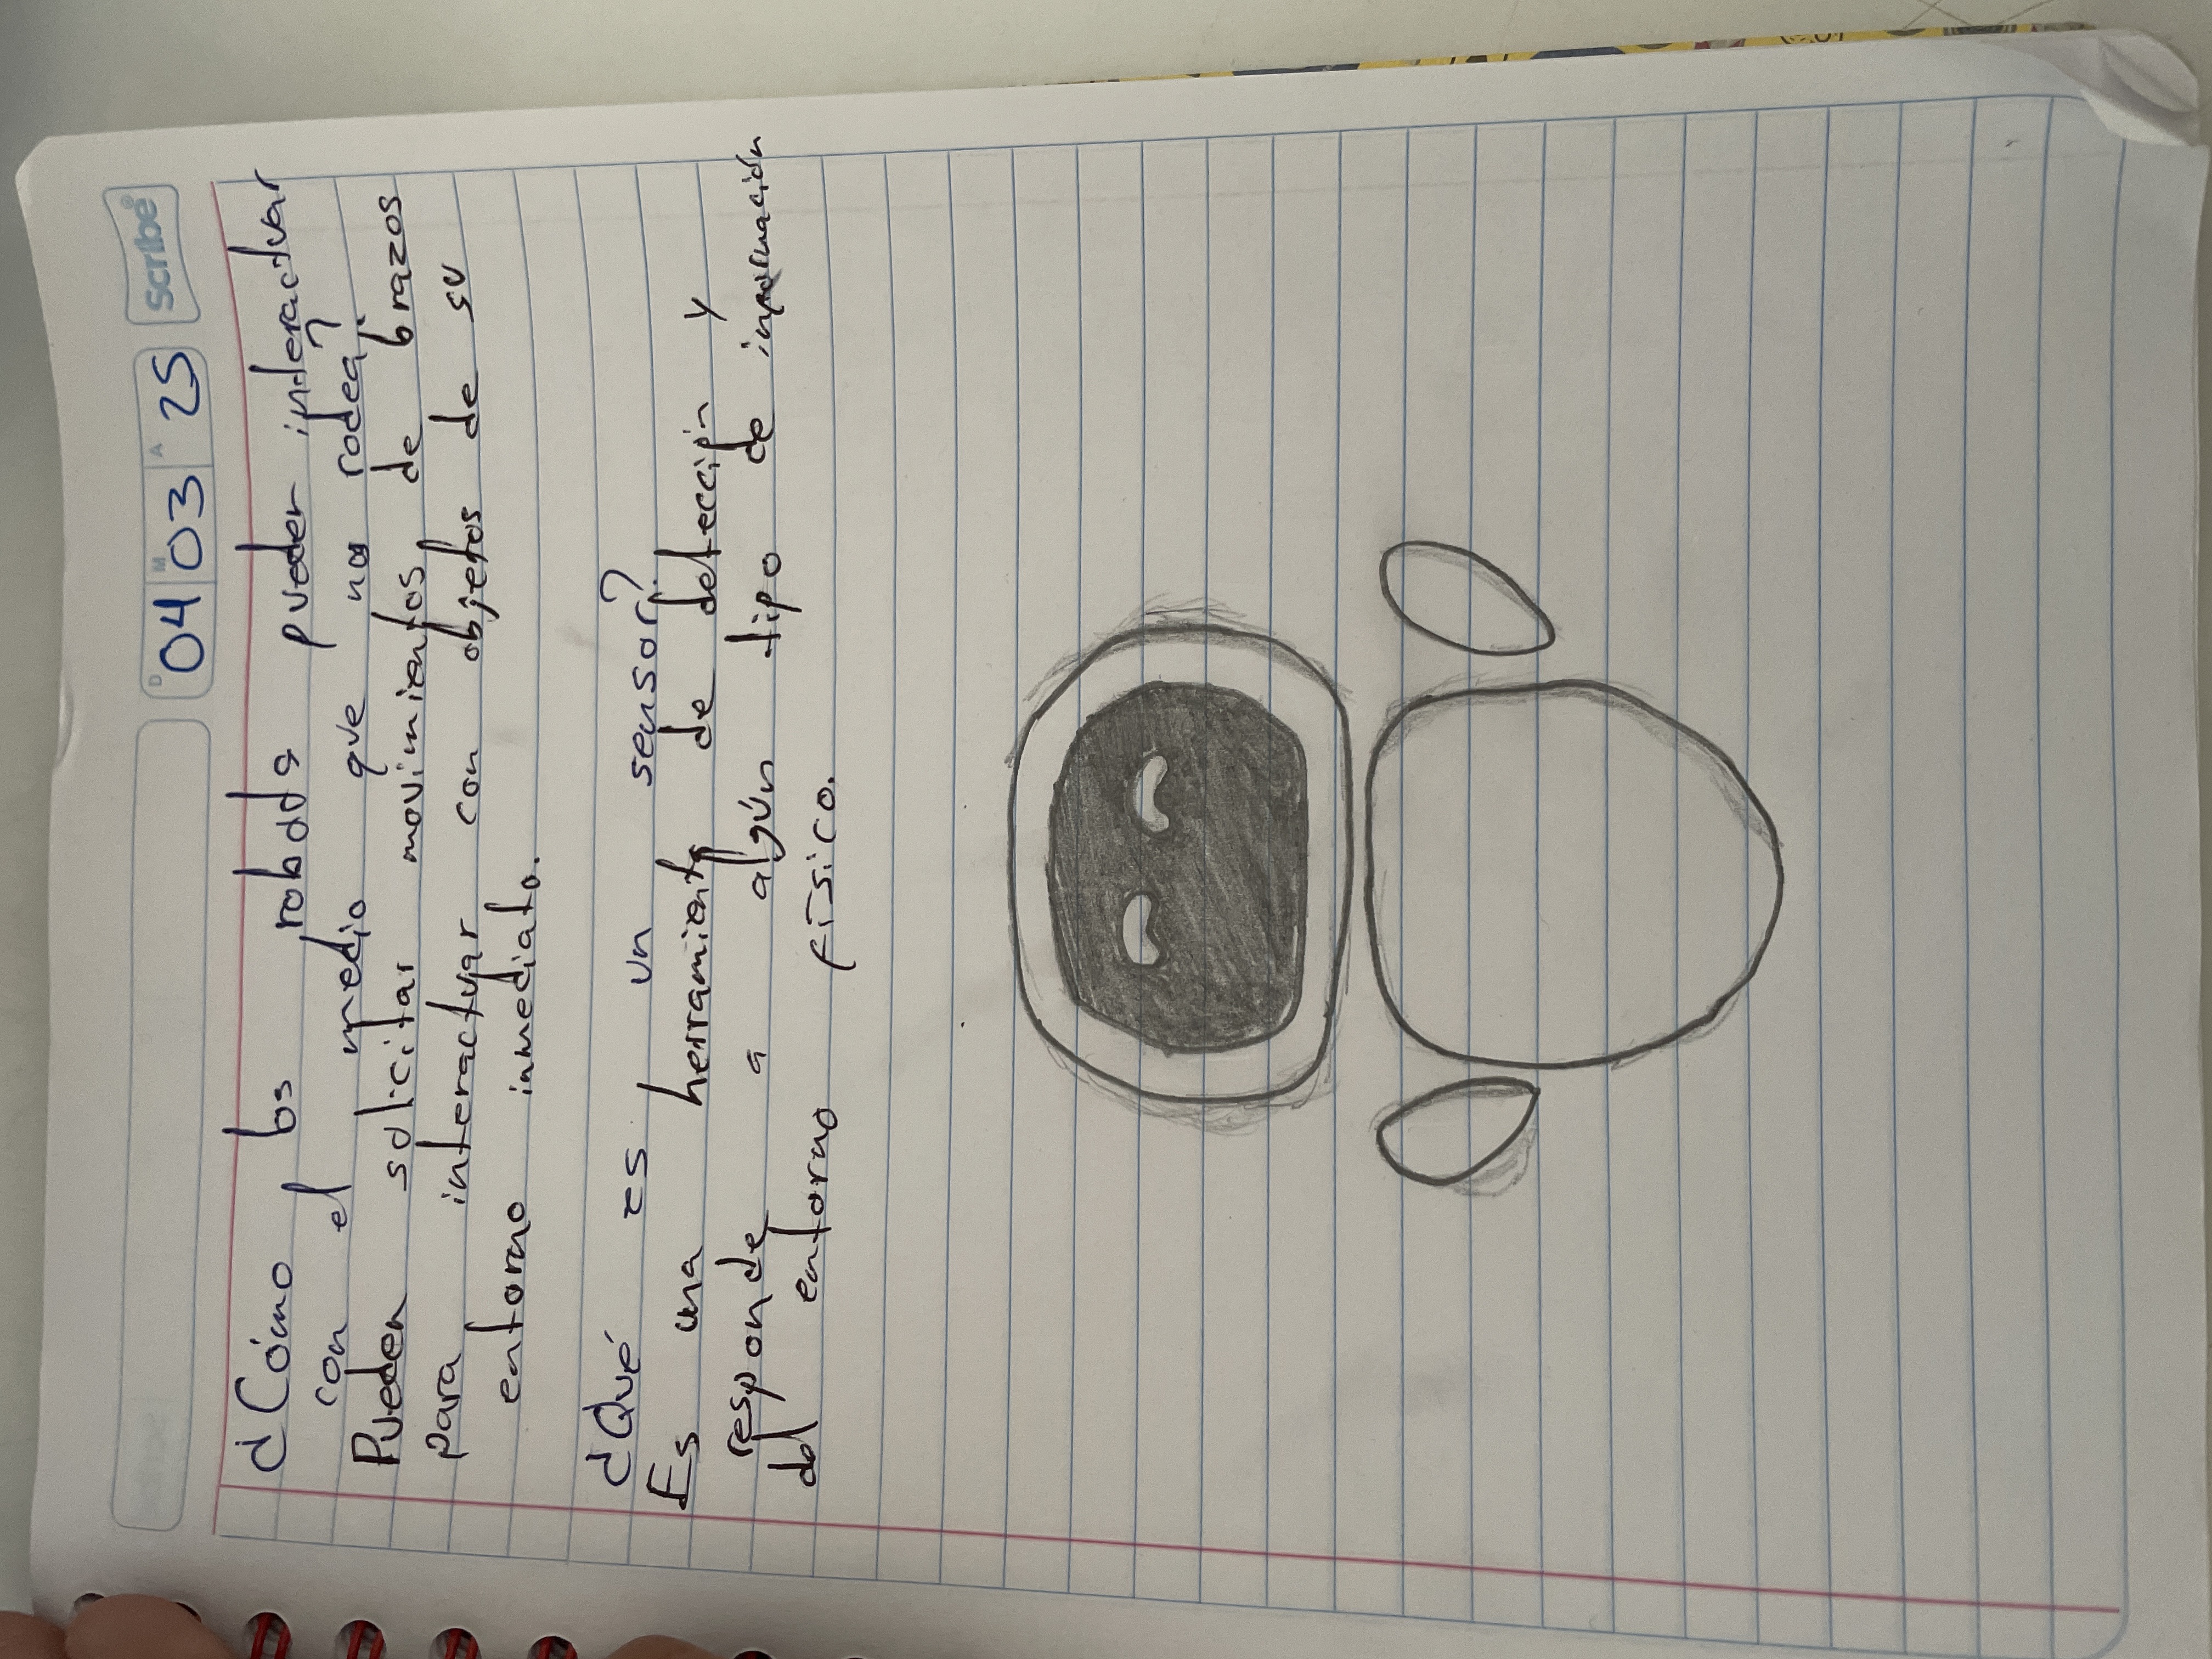 D 04 M 03 A 25 scribe®
¿Cómo los robots pueden interactuar
con el medio que nos rodea?
Pueden solicitar movimientos de brazos
para interactuar con objetos de su
entorno inmediato.
¿Qué es un sensor?
Es una herramienta de detección y
responde a algún tipo de información
del entorno físico.